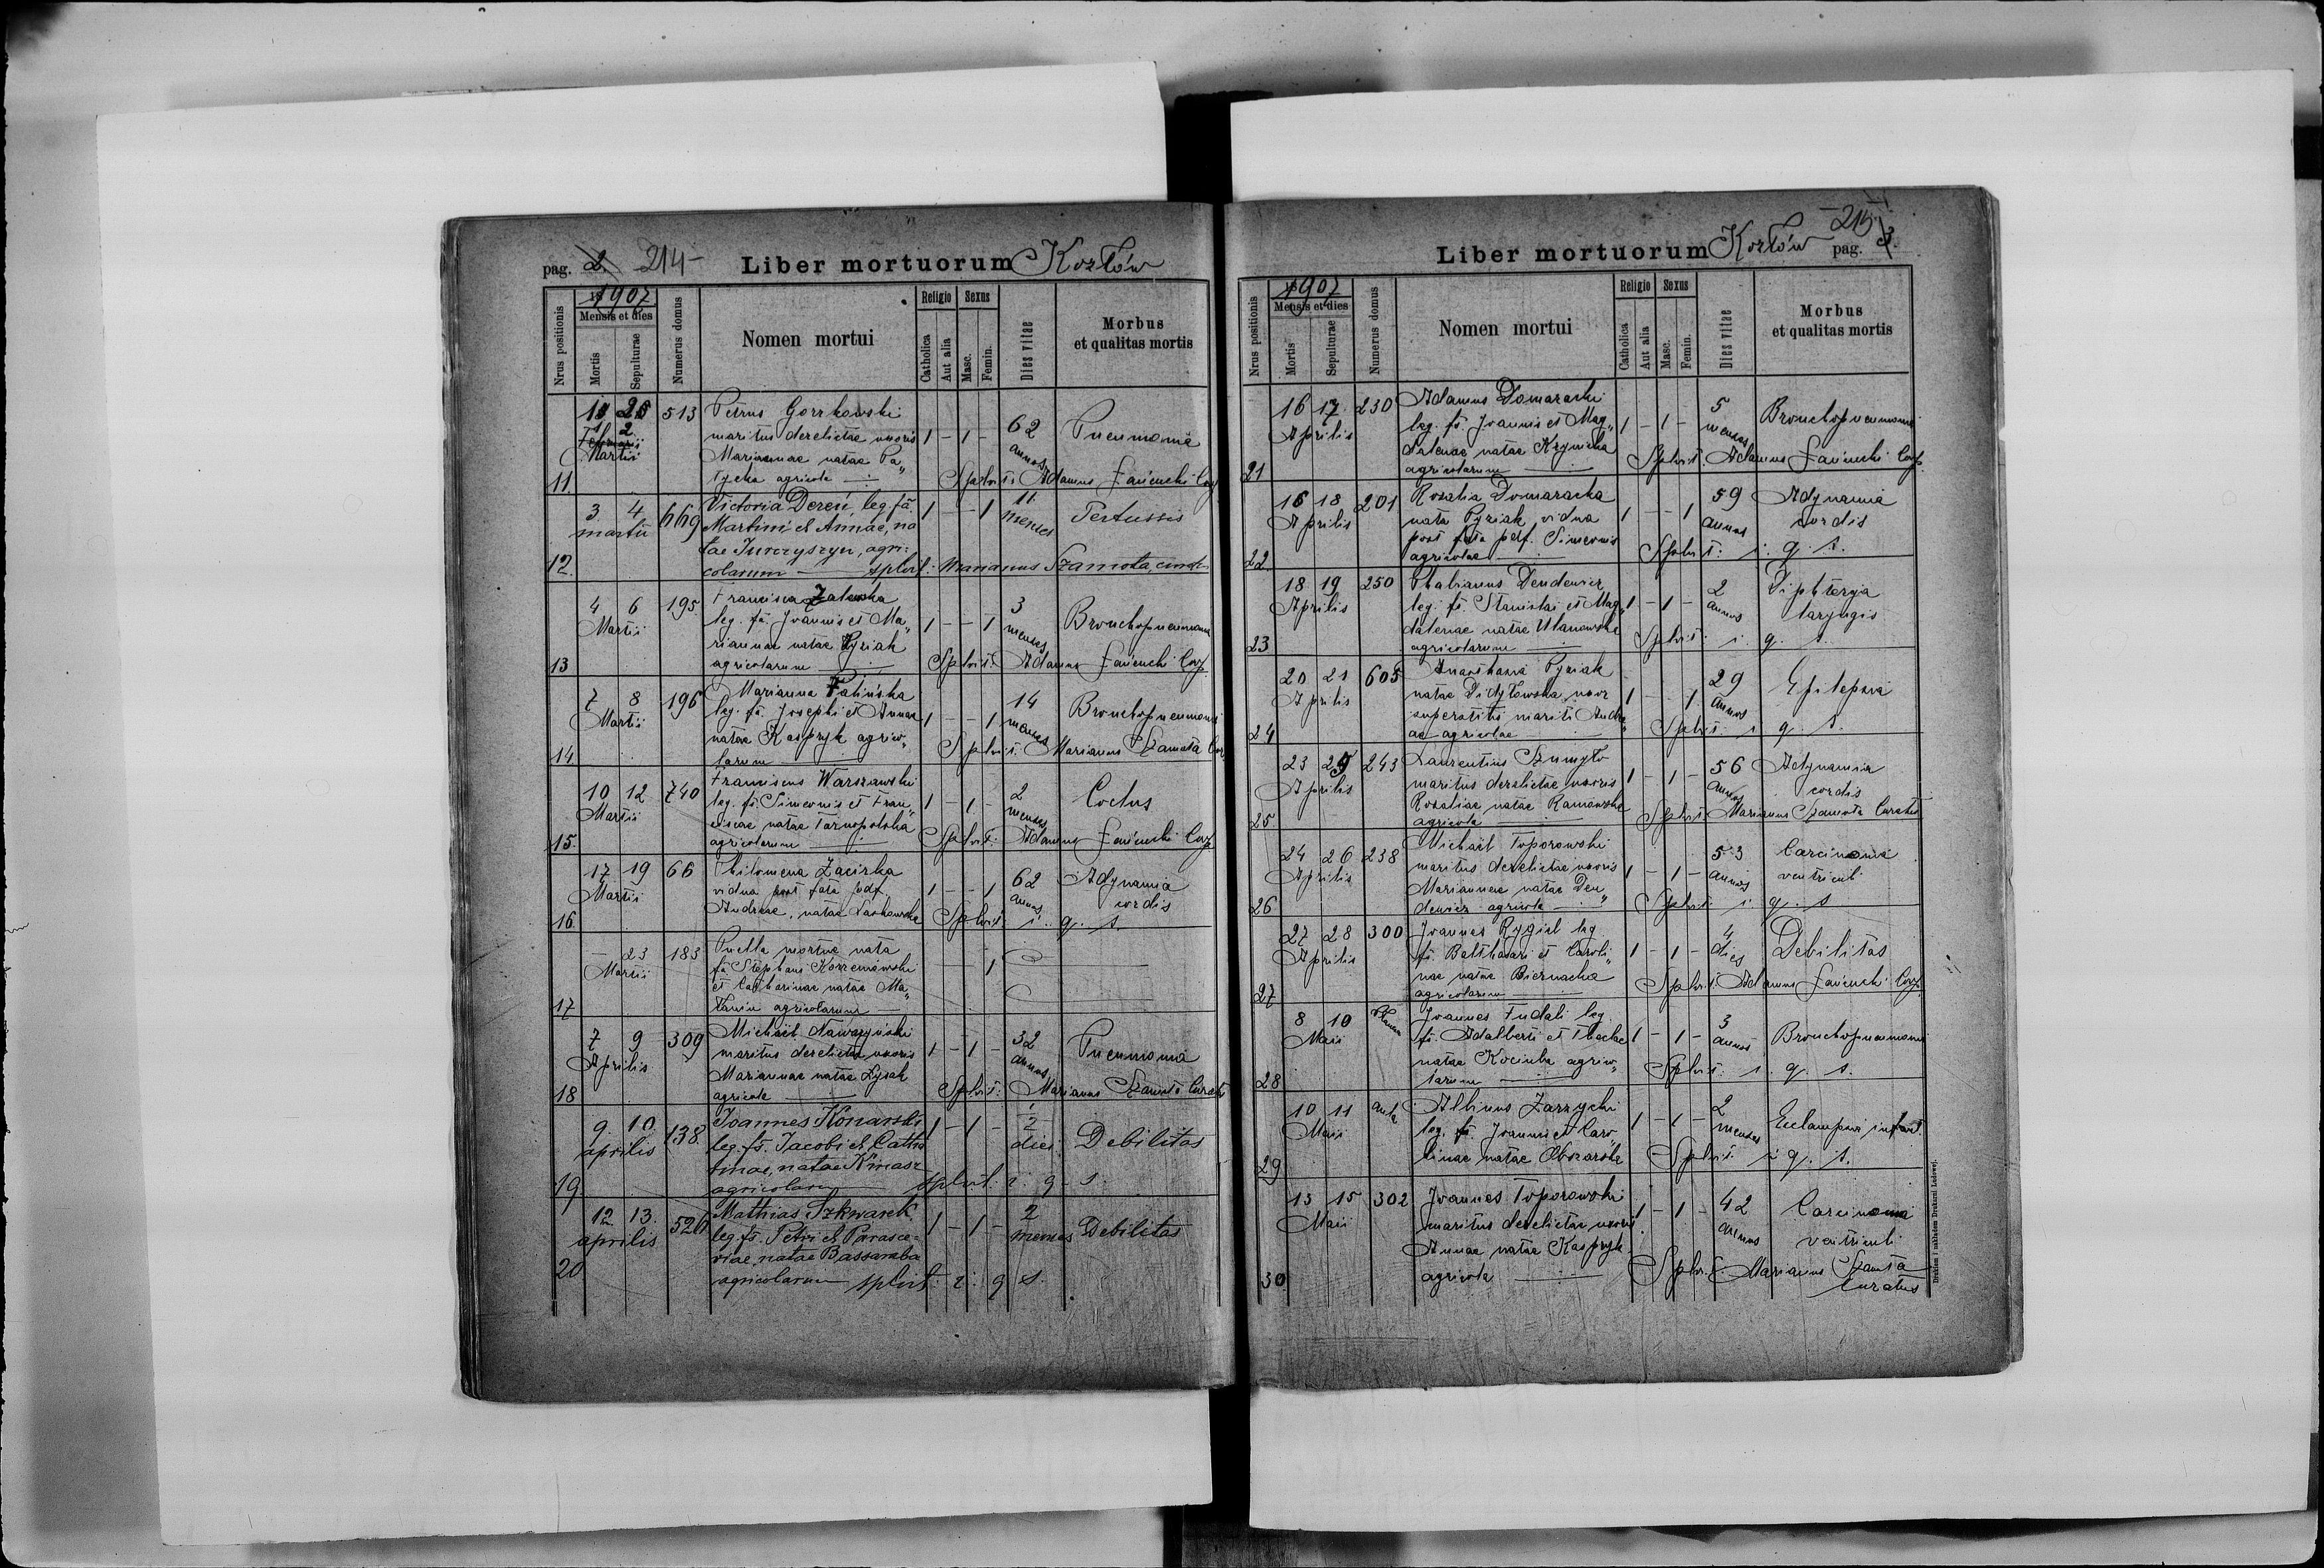 pag. 2. 214-
Liber mortuorum Kozłów
Nrus positionis
1907
Mensis et dies
Mortis
Sepulturae
Numerus domus
Nomen mortui
Religio
Catholica
Aut alia
Sexus
Masc.
Femin.
Dies vitae
Morbus
et qualitas mortis
513 Petrus Gorzkowski
2 maritus derelictae uxoris 1 - 1 - 62 annos Pneumonia
Martii Mariannae natae Pa„
11. tycka agricola Splvit: Adamus Łańcucki Coop
3 4 669 Victoria Dereń, leg. fa. 1 - - 1 11 menses Pertussis
martii Martini et Annae, na
tae Jurczyszyn, agri:
12. colarum splvit: Marianus Szamota, curatus
4 6 195. Francisca Zaleska
Martii leg. fa. Joannis et Ma„ 1 - - 1 3 menses Bronchopneumonia
riannae natae Pyziak
13 agricolarum Splvit: Adamus Łańcucki Coop.
7 8 196 Marianna Falińska
Martii leg. fa. Josephi et Annae 1 - - 1 14 menses Bronchopneumonia
natae Kasprzyk agrico„
14. larum Splvit: Marianus Szamota Cur.
10 12 740 Franciscus Warszawski
Martii leg. fs. Simeonis et Fran„ 1 - 1 - 2 menses Coctus
ciscae natae Tarnopolska
15. agricolarum Splvit: Adamus Łańcucki Coop.
17 19 66 Philomena Zacirka
Martii vidua post fata pdf. 1 - - 1 62 annos Adynamia cordis
16. Andreae, natae Laskowska Splvit: i. q. s.
- 23 183 Puella mortue nata
Martii fa Stephani Korzeniowski - - 1 -
et Catharinae natae Ma„
17 agricolarum
7 9 309 Michaël Nawazyński
Aprilis maritus derelictae uxoris 1 - 1 - 32 annos Pneumonia
Mariannae natae Łysak
18 agricola Splvit: Marianus Szamota Curatus
9. 10. 138. Joannes Konarski 1 - 1 - 2 dies Debilitas
aprilis leg. fs. Jacobi et Catha
rinae, natae Kmasz
19 agricolarum splvit: i. q. s.
12. 13. 520 Mathias Szkwarek 1 - 1 - 2 menses Debilitas
aprilis leg. fs. Petri et Parasce-
viae, natae Bassaraba
20 agricolarum splvit: i. q s.
-215-
Liber mortuorum Kozłów pag. 3.
Nrus positionis
1907
Mensis et dies
Mortis
Sepulturae
Numerus domus
Nomen mortui
Religio
Catholica
Aut alia
Sexus
Masc.
Femin.
Dies vitae
Morbus
et qualitas mortis
16 17. 230 Adamus Domaracki
Aprilis leg. fs. Joannis et Mag„ 1 - 1 - 5 menses Bronchopneumonia
dalenae natae Krynicka
21 agricolarum Splvit. Adamus Łańcucki Coop.
16 18 201 Rozalia Domaracka
Aprilis nata Pyziak vidua 1 - - 1 59 annos Adynamia cordis
post fata pdf. Simeonis
22. agricolae Splvit: i. q. s.
18 19 250 Fabianus Dendewicz
Aprilis leg. fs. Stanislai et Mag„ 1 - 1 - 2 annos Diphterja laryngis
dalenae natae Ulanowska
23 agricolarum Splvit: i. q. s.
20 21 605 Anasthasia Pyziak
Aprilis natae Didyłowska uxor 1 - - 1 29 annos Epilepsia
superstitis mariti Andre„
24 ae agricolae Splvit. i. q. s.
23 25 243 Laurentius Szumyło
Aprilis maritus derelictae uxoris 1 - 1 - 56 annos Adynamia cordis
Rozaliae natae Ramowska
25. agricola Splvit Marianus Szamota Curatus
24 26 238 Michaël Toporowski
Aprilis maritus derelictae uxoris 1 - 1 - 53 annos Carcinoma ventriculi
Mariannae natae Den„
26 dewicz agricola Splvit. i. q. s
27 28 300 Joannes Rygiel leg.
Aprilis fs. Balthasari et Caroli„ 1 - 1 - 4 dies Debilitas
nae natae Biernacka
27 agricolarum Splvit. Adamus Łańcucki Coop.
8 10 Joannes Fudali leg.
Maii fs. Adalberti et Theclae 1 - 1 - 3 annos Bronchopneumonia
natae Kociuba agrico„
28 larum Splvit. i. q. s.
10 11 Albinus Zarzycki
Maii leg. fs. Joannis et Caro„ 1 - 1 - 2 menses Eclampsia infant.
29 linae natae Obozarska Splvit. i. q. s.
13 15 302 Joannes Toporowski
Maii maritus derelictae uxoris 1 - 1 - 42 annos Carcinoma ventriculi
Annae natae Kasprzyk
30. agricola Splvit. Marianus Szamota
Curatus
Drukiem i nakładem Drukarni Ludowej.